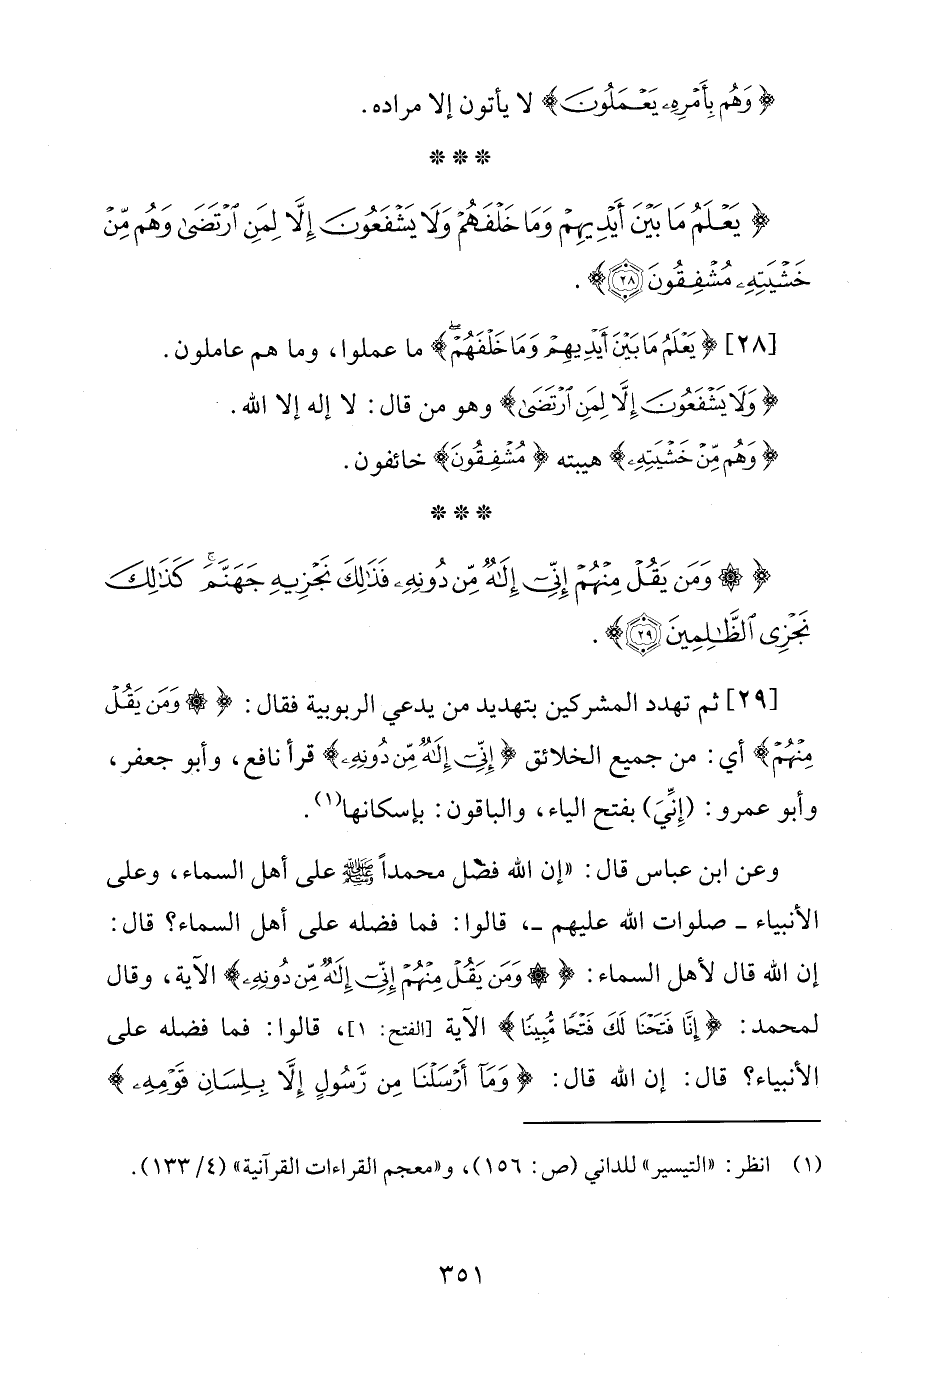 ﴿وَهُم بِأَمْرِهِۦ يَعْمَلُونَ﴾ لا يأتون إلا مراده.
* * *
﴿يَعْلَمُ مَا بَيْنَ أَيْدِيهِمْ وَمَا خَلْفَهُمْ وَلَا يَشْفَعُونَ إِلَّا لِمَنِ ٱرْتَضَىٰ وَهُم مِّنْ
خَشْيَتِهِۦ مُشْفِقُونَ ٢٨﴾.
[٢٨] ﴿يَعْلَمُ مَا بَيْنَ أَيْدِيهِمْ وَمَا خَلْفَهُمْۖ﴾ ما عملوا، وما هم عاملون.
﴿وَلَا يَشْفَعُونَ إِلَّا لِمَنِ ٱرْتَضَىٰ﴾ وهو من قال: لا إله إلا الله.
﴿وَهُم مِّنْ خَشْيَتِهِۦ﴾ هيبته ﴿مُشْفِقُونَ﴾ خائفون.
* * *
﴿۞ وَمَن يَقُلْ مِنْهُمْ إِنِّىٓ إِلَٰهٌ مِّن دُونِهِۦ فَذَٰلِكَ نَجْزِيهِ جَهَنَّمَۚ كَذَٰلِكَ
نَجْزِى ٱلظَّٰلِمِينَ ٢٩﴾.
[٢٩] ثم تهدد المشركين بتهديد من يدعي الربوبية فقال: ﴿۞ وَمَن يَقُلْ
مِنْهُمْ﴾ أي: من جميع الخلائق ﴿إِنِّىٓ إِلَٰهٌ مِّن دُونِهِۦ﴾ قرأ نافع، وأبو جعفر،
وأبو عمرو: (إِنِّيَ) بفتح الياء، والباقون: بإسكانها(١).
وعن ابن عباس قال: «إن الله فضّل محمداً ﷺ على أهل السماء، وعلى
الأنبياء ـ صلوات الله عليهم ـ، قالوا: فما فضله على أهل السماء؟ قال:
إن الله قال لأهل السماء: ﴿۞ وَمَن يَقُلْ مِنْهُمْ إِنِّىٓ إِلَٰهٌ مِّن دُونِهِۦ﴾ الآية، وقال
لمحمد: ﴿إِنَّا فَتَحْنَا لَكَ فَتْحًا مُّبِينًا﴾ الآية [الفتح: ١]، قالوا: فما فضله على
الأنبياء؟ قال: إن الله قال: ﴿وَمَآ أَرْسَلْنَا مِن رَّسُولٍ إِلَّا بِلِسَانِ قَوْمِهِۦ﴾
(١) انظر: «التيسير» للداني (ص: ١٥٦)، و«معجم القراءات القرآنية» (٤/ ١٣٣).
٣٥١